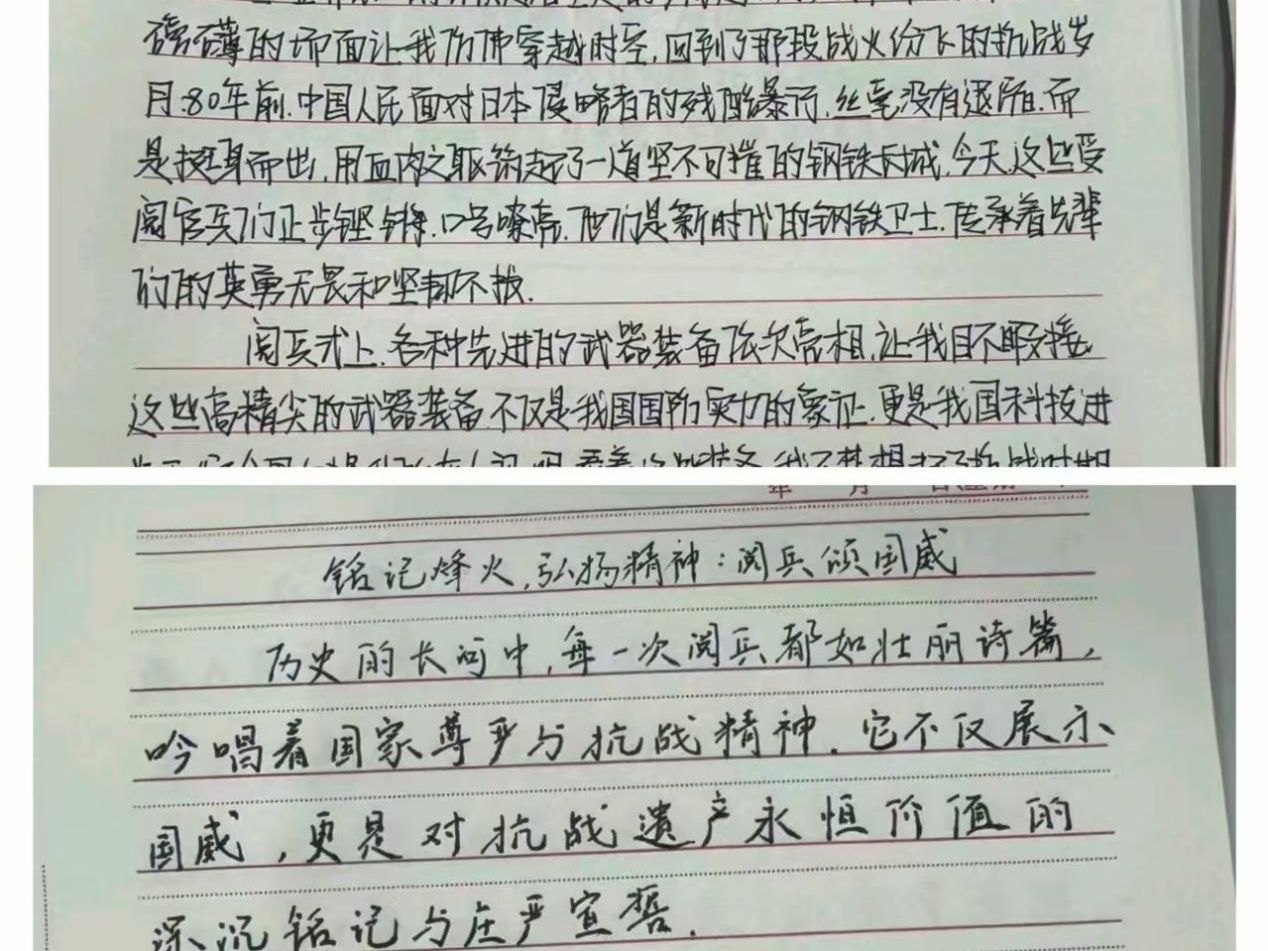 磅礴的场面让我仿佛穿越时空,回到了那段战火纷飞的抗战岁
月.80年前.中国人民面对日本侵略者的残酷暴行.丝毫没有退缩.而
是挺身而出,用血肉之躯筑起了一道坚不可摧的钢铁长城.今天.这些受
阅官兵们正步铿锵.口号嘹亮.他们是新时代的钢铁卫士.传承着先辈
们的英勇无畏和坚韧不拔.
阅兵式上.各种先进的武器装备依次亮相,让我目不暇接.
这些高精尖的武器装备.不仅是我国国防实力的象征.更是我国科技进
年 月
铭记烽火,弘扬精神:阅兵颂国威
历史的长河中,每一次阅兵都如壮丽诗篇,
吟唱着国家尊严与抗战精神.它不仅展示
国威,更是对抗战遗产永恒价值的
深沉铭记与庄严宣誓.